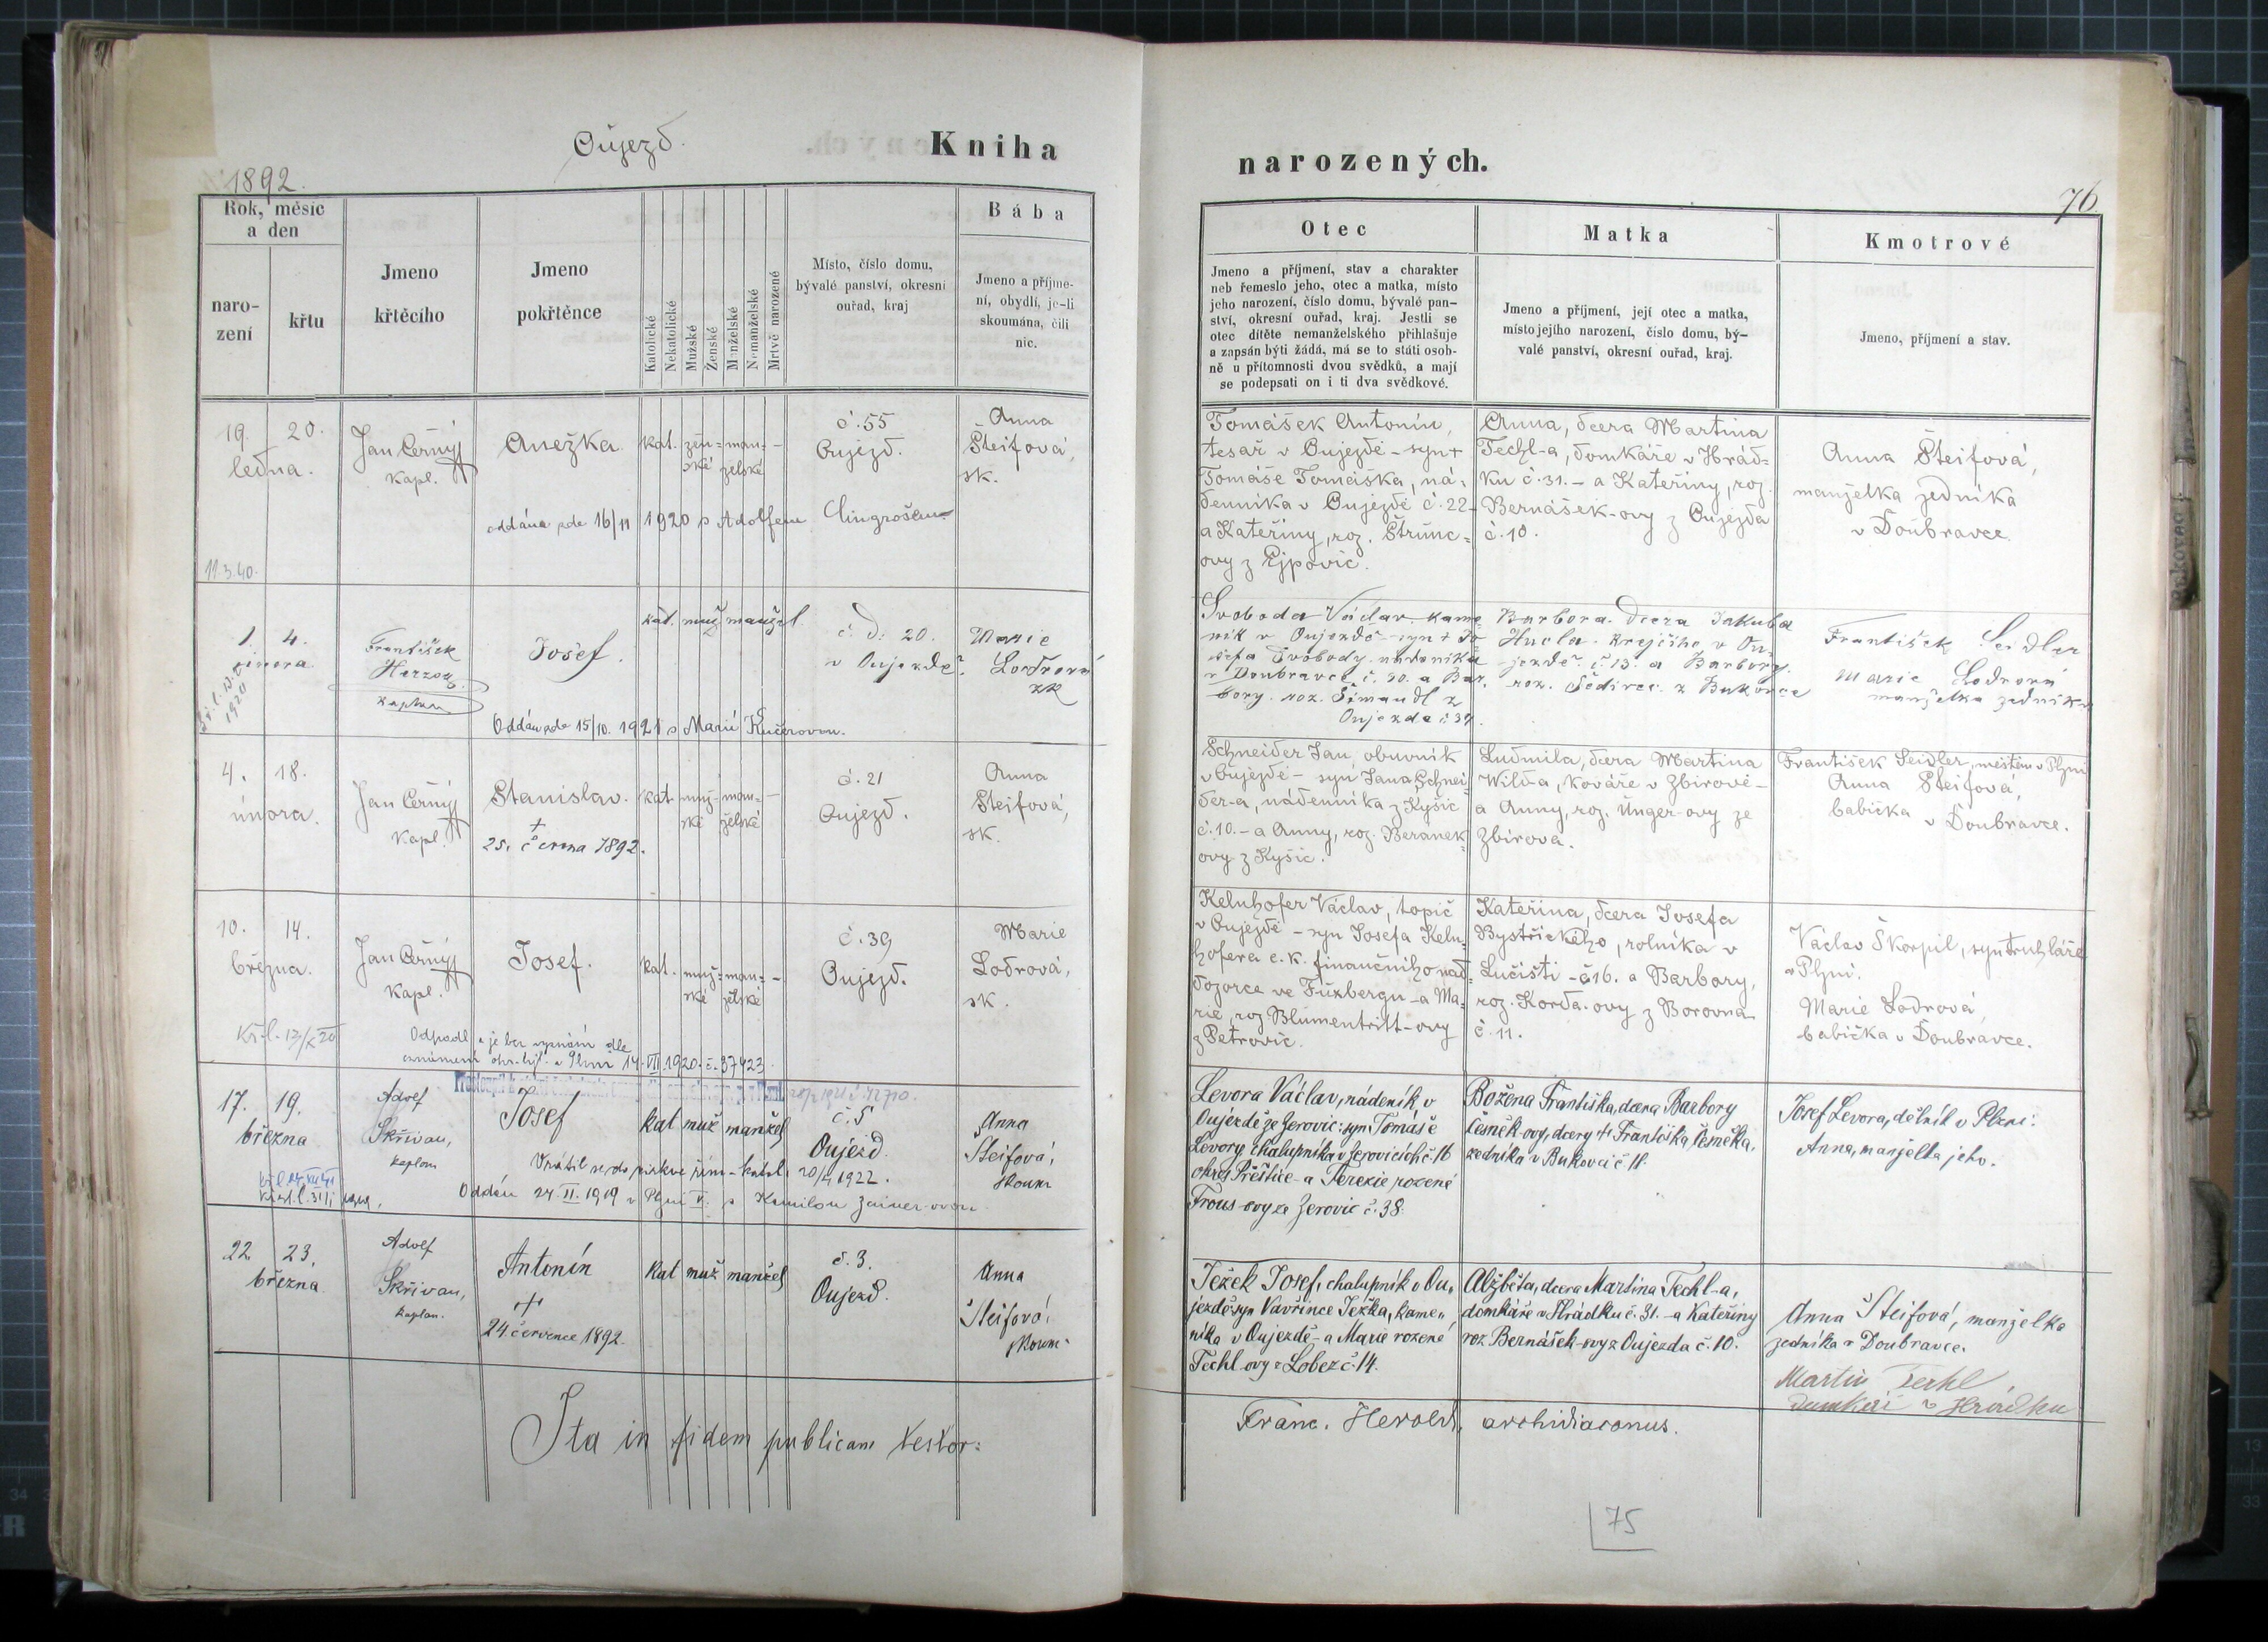 Oujezd.
Kniha
narozených.
1892.
76
Rok, měsíc
a den
naro-
zení
křtu
Jmeno
křtěcího
Jmeno
pokřtěnce
Katolické
Nekatolické
Mužské
Ženské
Manželské
Nemanželské
Mrtvě narozené
Místo, číslo domu,
bývalé panství, okresní
ouřad, kraj
Bába
Jmeno a příjme-
ní, obydlí, je-li
skoumána, čili
nic.
Otec
Jmeno a příjmení, stav a charakter
neb řemeslo jeho, otec a matka, místo
jeho narození, číslo domu, bývalé pan-
ství, okresní ouřad, kraj. Jestli se
otec dítěte nemanželského přihlašuje
a zapsán býti žádá, má se to státi osob-
ně u přítomnosti dvou svědků, a mají
se podepsati on i ti dva svědkové.
Matka
Jmeno a příjmení, její otec a matka,
místo jejího narození, číslo domu, bý-
valé panství, okresní ouřad, kraj.
Kmotrové
Jmeno, příjmení a stav.
19. 20.
ledna.
11.3.40.
Jan Černý
kapl.
Anežka.
kat. žen= man= -
ské želské
č. 55
Oujezd.
Anna
Šteifová,
sk.
oddána zde 16/11 1920 s Adolfem Clingrošem
Tomášek Antonín,
tesař v Oujezdě - syn +
Tomáše Tomáška, ná-
denníka v Oujezdě č. 22-
a Kateřiny, roz. Štrunc=
ovy z Ejpovic.
Anna, dcera Martina
Techl-a, domkáře v Hrád=
ku č. 31. - a Kateřiny, roz.
Bernášek-ovy z Oujezda
č. 10.
Anna Šteifová,
manželka zedníka
v Doubravce.
1. 4.
února
1920
František
Herzog
kaplan
Josef.
kat. muž manžel.
č. d. 20.
v Oujezdě.
Marie
Lodrová
zk
Oddán zde 15/10. 1921 s Marií Kučerovou.
Svoboda Václav kame
ník v Oujezdě - syn + Jo
sefa Svobody nádeníka
v Doubravce č. 30. a Bar.
bory. roz. Šimandl z
Oujezda č 37.
Barbora. dcera Jakuba
Hucla. krejčího v Ou-
jezdě. č. 13. a Barbory.
roz. Šedivec. z Bukovce
František Seidler
Marie Lodrová
manželka zedníka
4. 18.
února.
Jan Černý
kapl.
Stanislav.
+
25. června 1892.
kat. muž= man= -
ské želské
č. 21
Oujezd.
Anna
Šteifová,
sk.
Schneider Jan, obuvník
v Oujezdě - syn Jana Schnei=
der-a, nádenníka z Kyšic
č. 10. - a Anny, roz. Beranek=
ovy z Kyšic.
Ludmila, dcera Martina
Wild-a, kováře v Zbirově -
a Anny, roz. Unger-ovy ze
Zbirova.
František Seidler, měštan v Plzni
Anna Šteifová,
babička v Doubravce.
10. 14.
března.
Jan Černý
kapl.
Josef.
kat. muž= man= -
ské želské
č. 39
Oujezd.
Marie
Lodrová,
sk.
Odpadl a je bez vyznání dle
oznámení okr. hejt. v Plzni 14. VII. 1920. č. 37423.
Kelnhofer Václav, topič
v Oujezdě - syn Josefa Keln=
hofera c. k. finančního nad=
dozorce ve Füxbergu - a Ma=
rie, roz. Blumentritt-ovy
z Petrovic.
Kateřina, dcera Josefa
Bystřického, rolníka v
Lučišti - č. 16. a Barbory,
roz. Korda-ovy z Borovna
č. 11.
Václav Škorpil, syn truhláře
v Plzni.
Marie Lodrová,
babička v Doubravce.
17. 19.
března
Adolf
Skřivan,
kaplan
Josef
kat muž manžel
č. 5
Oujezd.
Anna
Šteifová,
skoum
Vrátil se do církve řím-katol. 20/4 1922.
Oddán 24. II. 1919 v Plzni s Kamilou
Levora Václav, nádeník v
Oujezdě ze Žerovic: syn Tomáše
Levory, chalupníka v Žerovicích č. 16
okres Přeštice - a Terezie rozené
Frous-ovy ze Žerovic č. 38.
Božena Františka, dcera Barbory
Česnek-ovy, dcery + Františka Česneka,
zedníka v Bukovci č. 18.
Josef Levora, dělník v Plzni:
Anna, manželka jeho.
22. 23.
března
Adolf
Skřivan,
kaplan.
Antonín
+
24. července 1892.
kat muž manžel
č. 3.
Oujezd.
Anna
Šteifová,
skoum.
Ježek Josef, chalupník v Ou„
jezdě: syn Vavřince Ježka, kame„
níka v Oujezdě - a Marie rozené
Techl-ovy z Lobez č. 14.
Alžběta, dcera Martina Techl-a,
domkáře v Hrádku č. 31. - a Kateřiny
roz. Bernášek-ovy z Oujezda č. 10.
Anna Šteifová, manželka
zedníka v Doubravce.
Martin Techl,
domkář v Hrádku
Ita in fidem publicam testor:
Franc. Herold, archidiaconus.
75